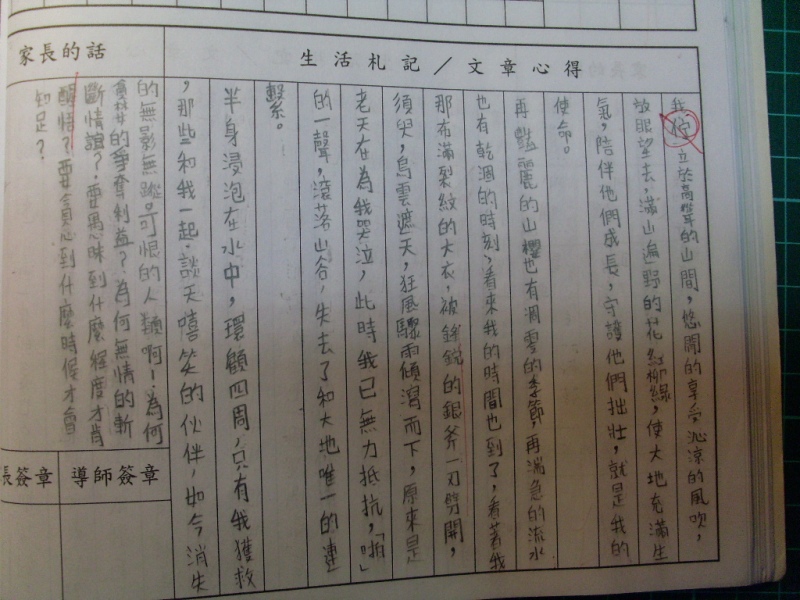 生活札記／文章心得
我控立於高聳的山間，悠閒的享受，沁涼的風吹，
放眼望去，滿山遍野的花紅柳綠，使大地充滿生
氣，陪伴他們成長，守護他們拙壯，就是我的
使命。
再豔麗的山櫻也有凋零的季節，再湍急的流水
也有乾涸的時刻，看來我的時間也到了，看著我
那布滿裂紋的大衣，被鋒銳的銀斧一刃劈開，
須臾，烏雲遮天，狂風驟雨傾瀉而下，原來是
老天在為我哭泣，此時我已無力抵抗，「啪」
的一聲，滾落山谷，失去了和大地唯一的連
繫。
半身浸泡在水中，環顧四周，只有我獲救
，那些和我一起談天嘻笑的伙伴，如今消失
家長的話
的無影無蹤。可恨的人類啊！為何
的爭奪利益？為何無情的斬
斷情誼？要到什麼程度才肯
醒悟？要貪心到什麼時候才會
知足？
導師簽章
長簽章